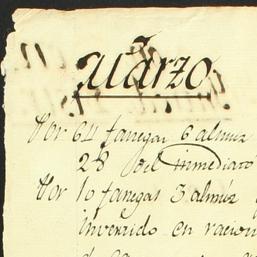 Marzo
Por 64 fanegas 6 almuz
28 del inmediato
Por 10 fanegas 3 almúz
invertido en racion